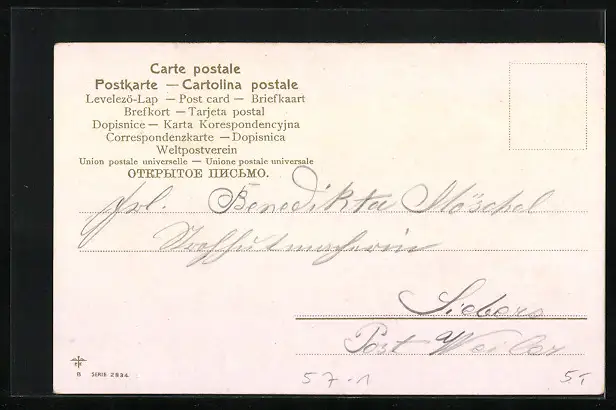 Carte postale
Postkarte — Cartolina postale
Levelező-Lap — Post card — Briefkaart
Brefkort — Tarjeta postal
Dopisnice — Karta Korespondencyjna
Correspondenzkarte — Dopisnica
Weltpostverein
Union postale universelle — Unione postale universale
ОТКРЫТОЕ ПИСЬМО.
Frl. Benedikta Möschel
Strohhutmacherin
Siebers
Post Weiler
57-1
5.-
B SERIE 2834